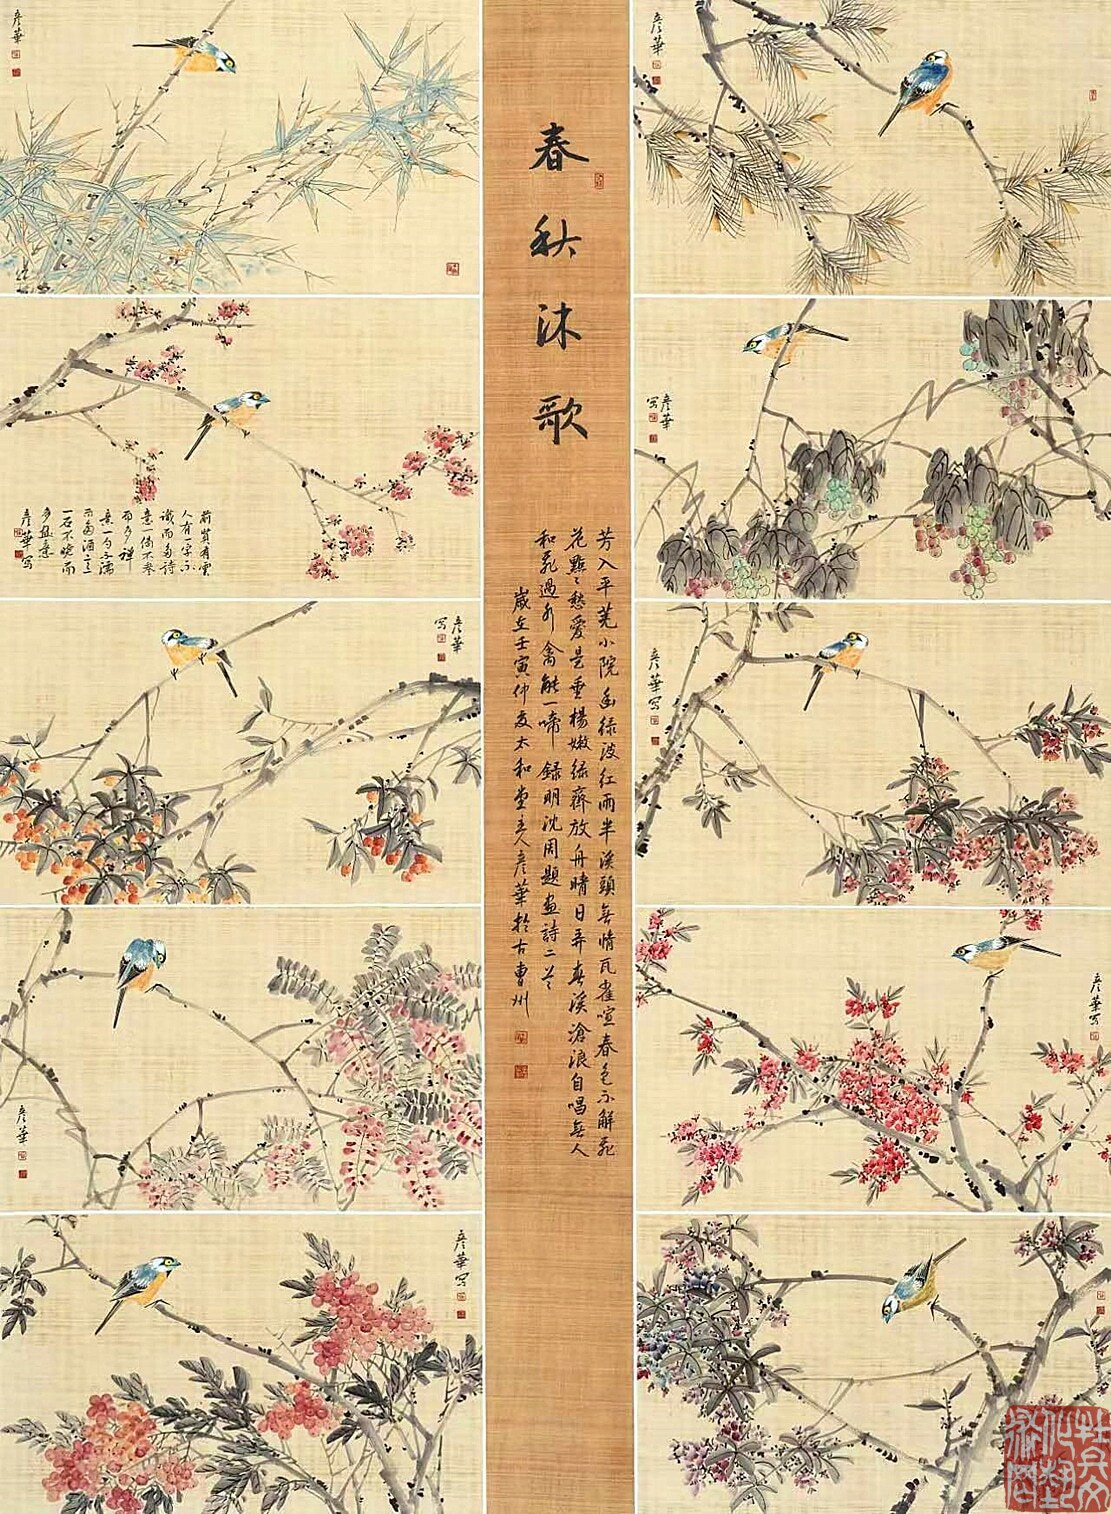 春秋沐歌
芳入平芜小院幽绿波红雨半溪頭無情瓦雀喧春色不解花
花點點愁愛是垂楊嫩绿齊放舟晴日弄春溪滄浪自唱無人
和花過水禽能一啼 録明沈周題畫詩二首
嵗在壬寅仲夏太和堂主人彦華於古曹州
彦華
彦華
前賢有雲
人有一字不
識而多詩
意一偈不参
而多禪
意一勺不濡
而多酒意
一石不曉而
多画意
彦華写
彦華
写
彦華
写
彦華写
彦華
彦華写
彦華写